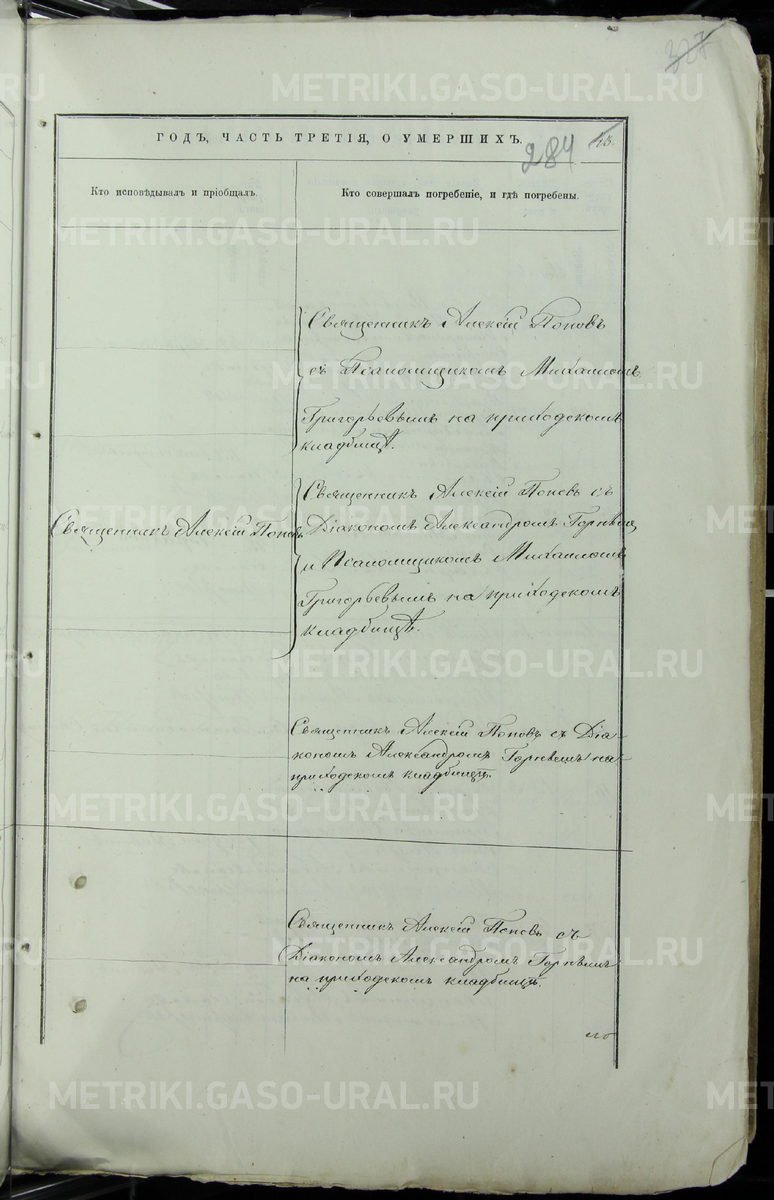 327
ГОДЪ, ЧАСТЬ ТРЕТІЯ, О УМЕРШИХЪ.
284
Кто исповѣдывалъ и пріобщалъ.
Кто совершалъ погребеніе, и гдѣ погребены.
Священникъ Алексій Поповъ
съ Псаломщикомъ Михаиломъ
Григорьевымъ на приходскомъ
кладбищѣ.
Священникъ Алексій Поповъ
Священникъ Алексій Поповъ съ
Діакономъ Александромъ
и Псаломщикомъ Михаиломъ
Григорьевымъ на приходскомъ
кладбищѣ.
Священникъ Алексій Поповъ съ Діа-
кономъ Александромъ на
приходскомъ кладбищѣ.
Священникъ Алексій Поповъ съ
Діакономъ Александромъ
на приходскомъ кладбищѣ.
METRIKI.GASO-URAL.RU